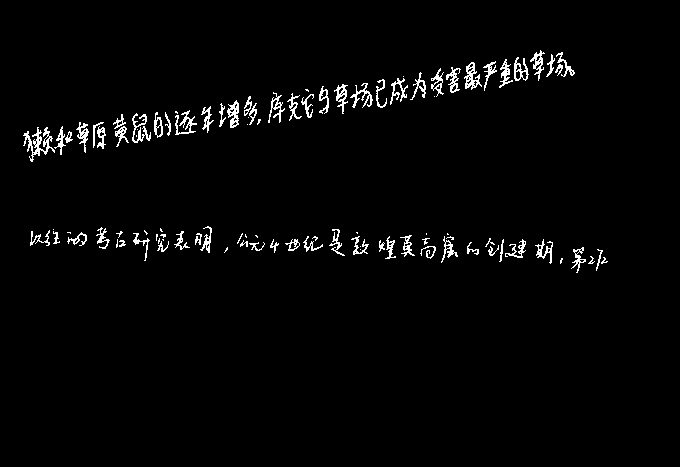 獭和草原黄鼠的逐年增多,库克它乌草场已成为受害最严重的草场。
以往的考古研究表明,公元4世纪是敦煌莫高窟的创建期,第272